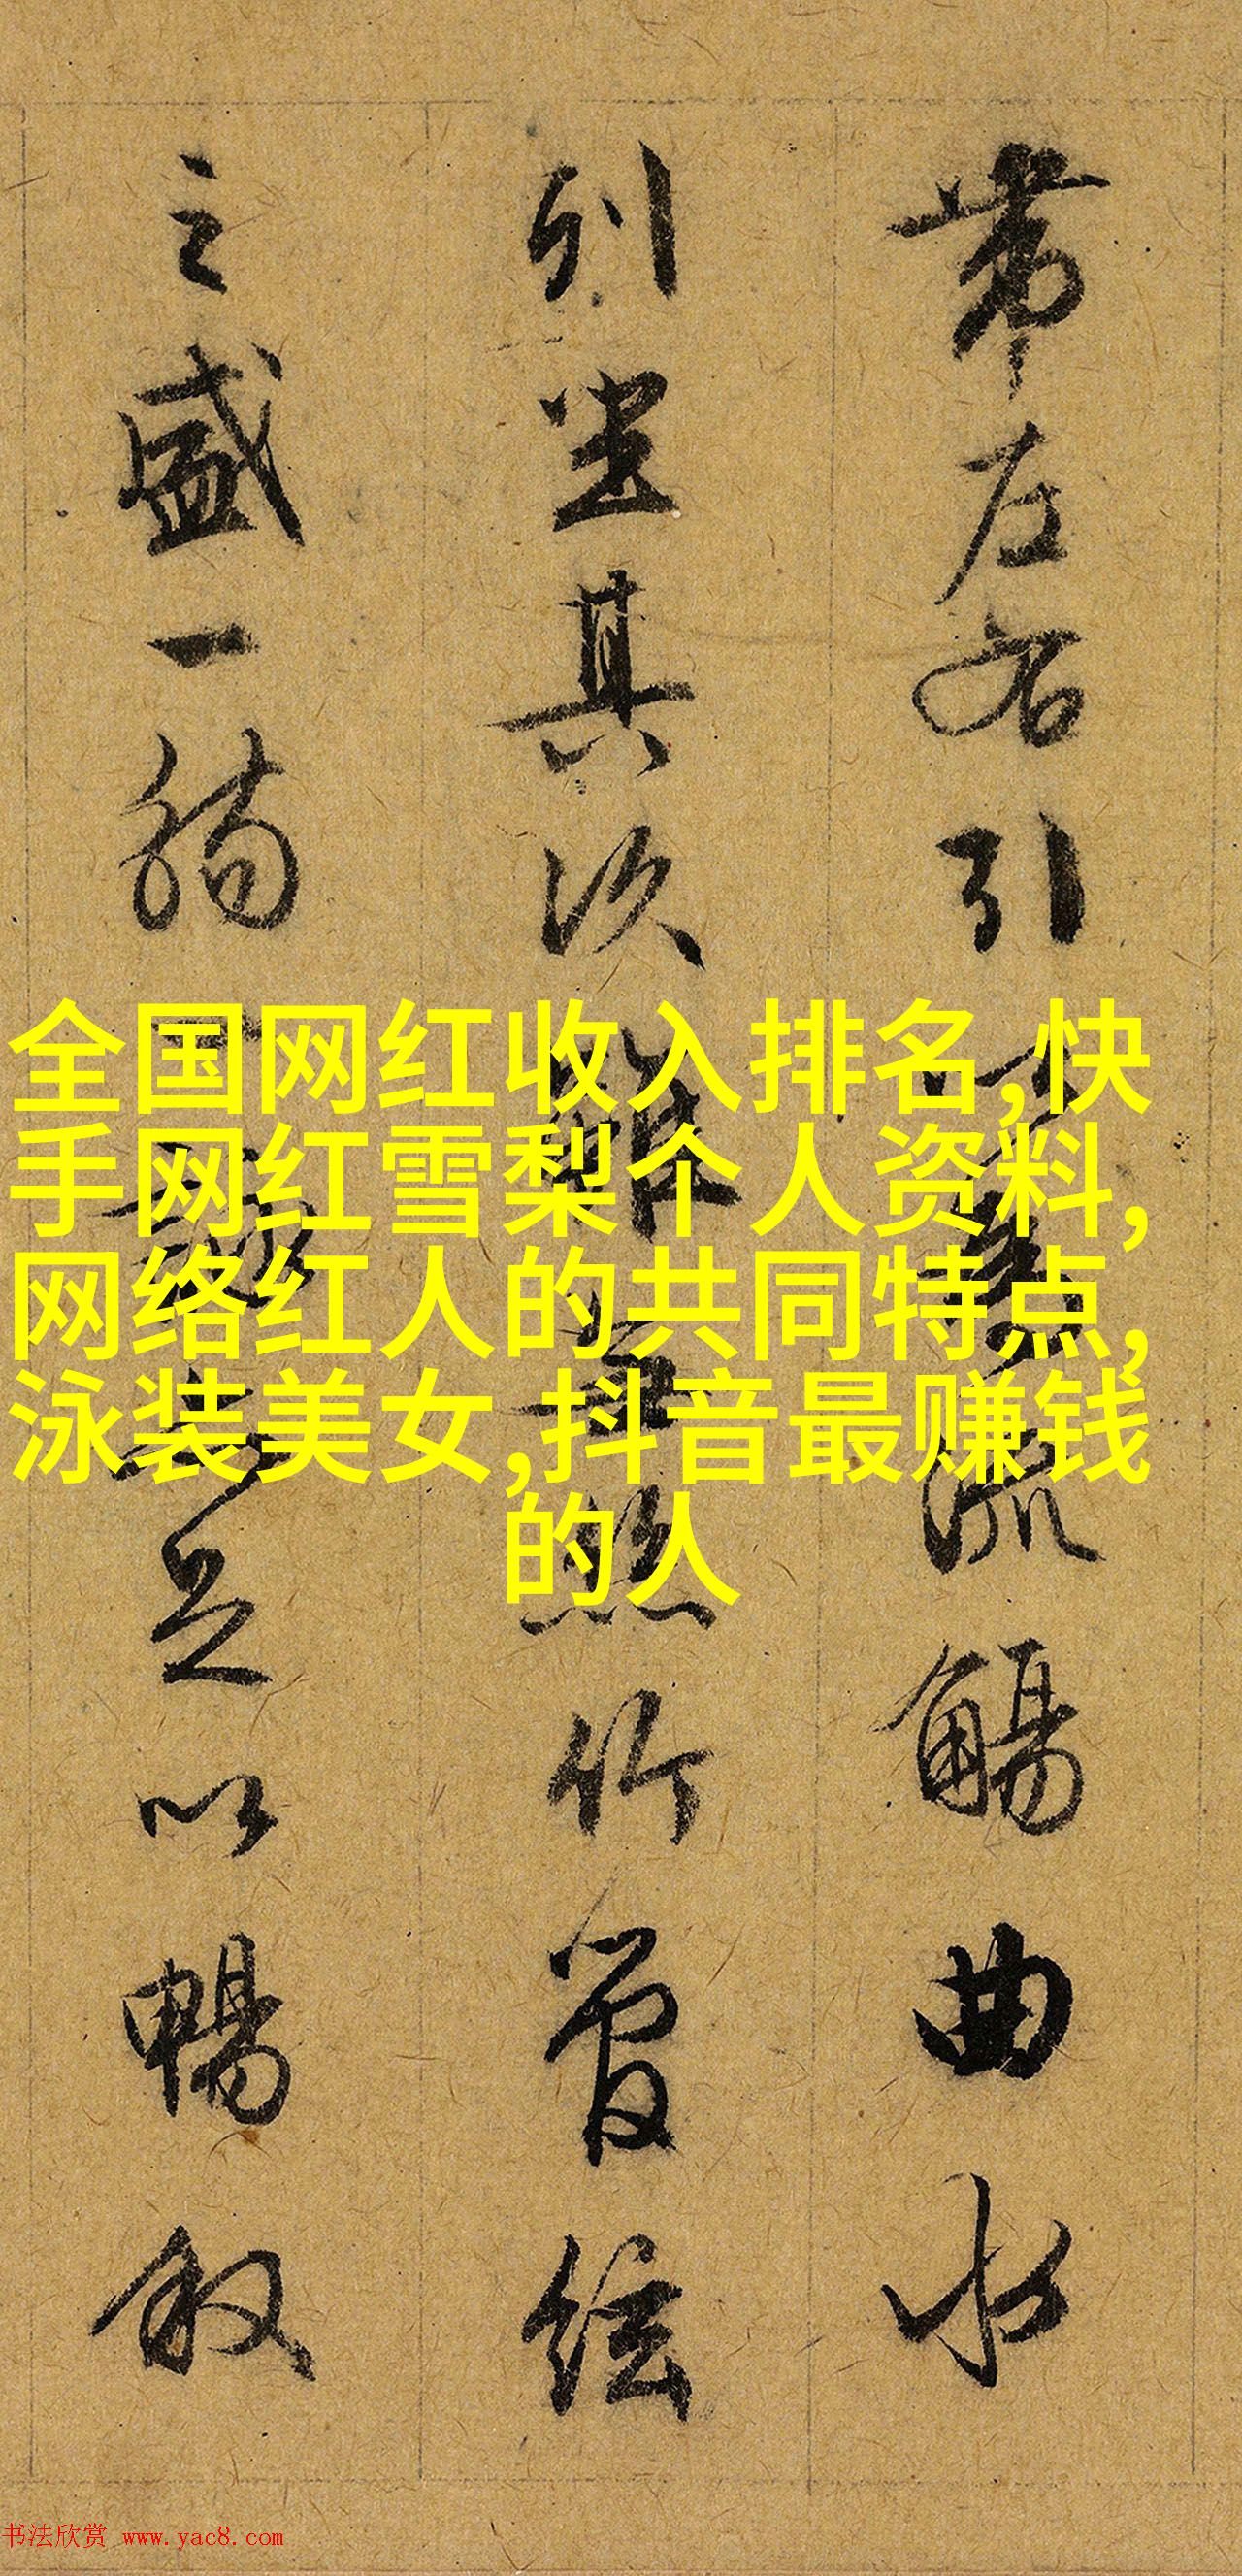 帶左右引以為流觴曲水
列坐其次雖無絲竹管絃
之盛一觴一詠亦足以暢敘
全国网红收入排名,快
手网红雪梨个人资料,
网络红人的共同特点,
泳装美女,抖音最赚钱
的人
书法欣赏 www.yac8.com